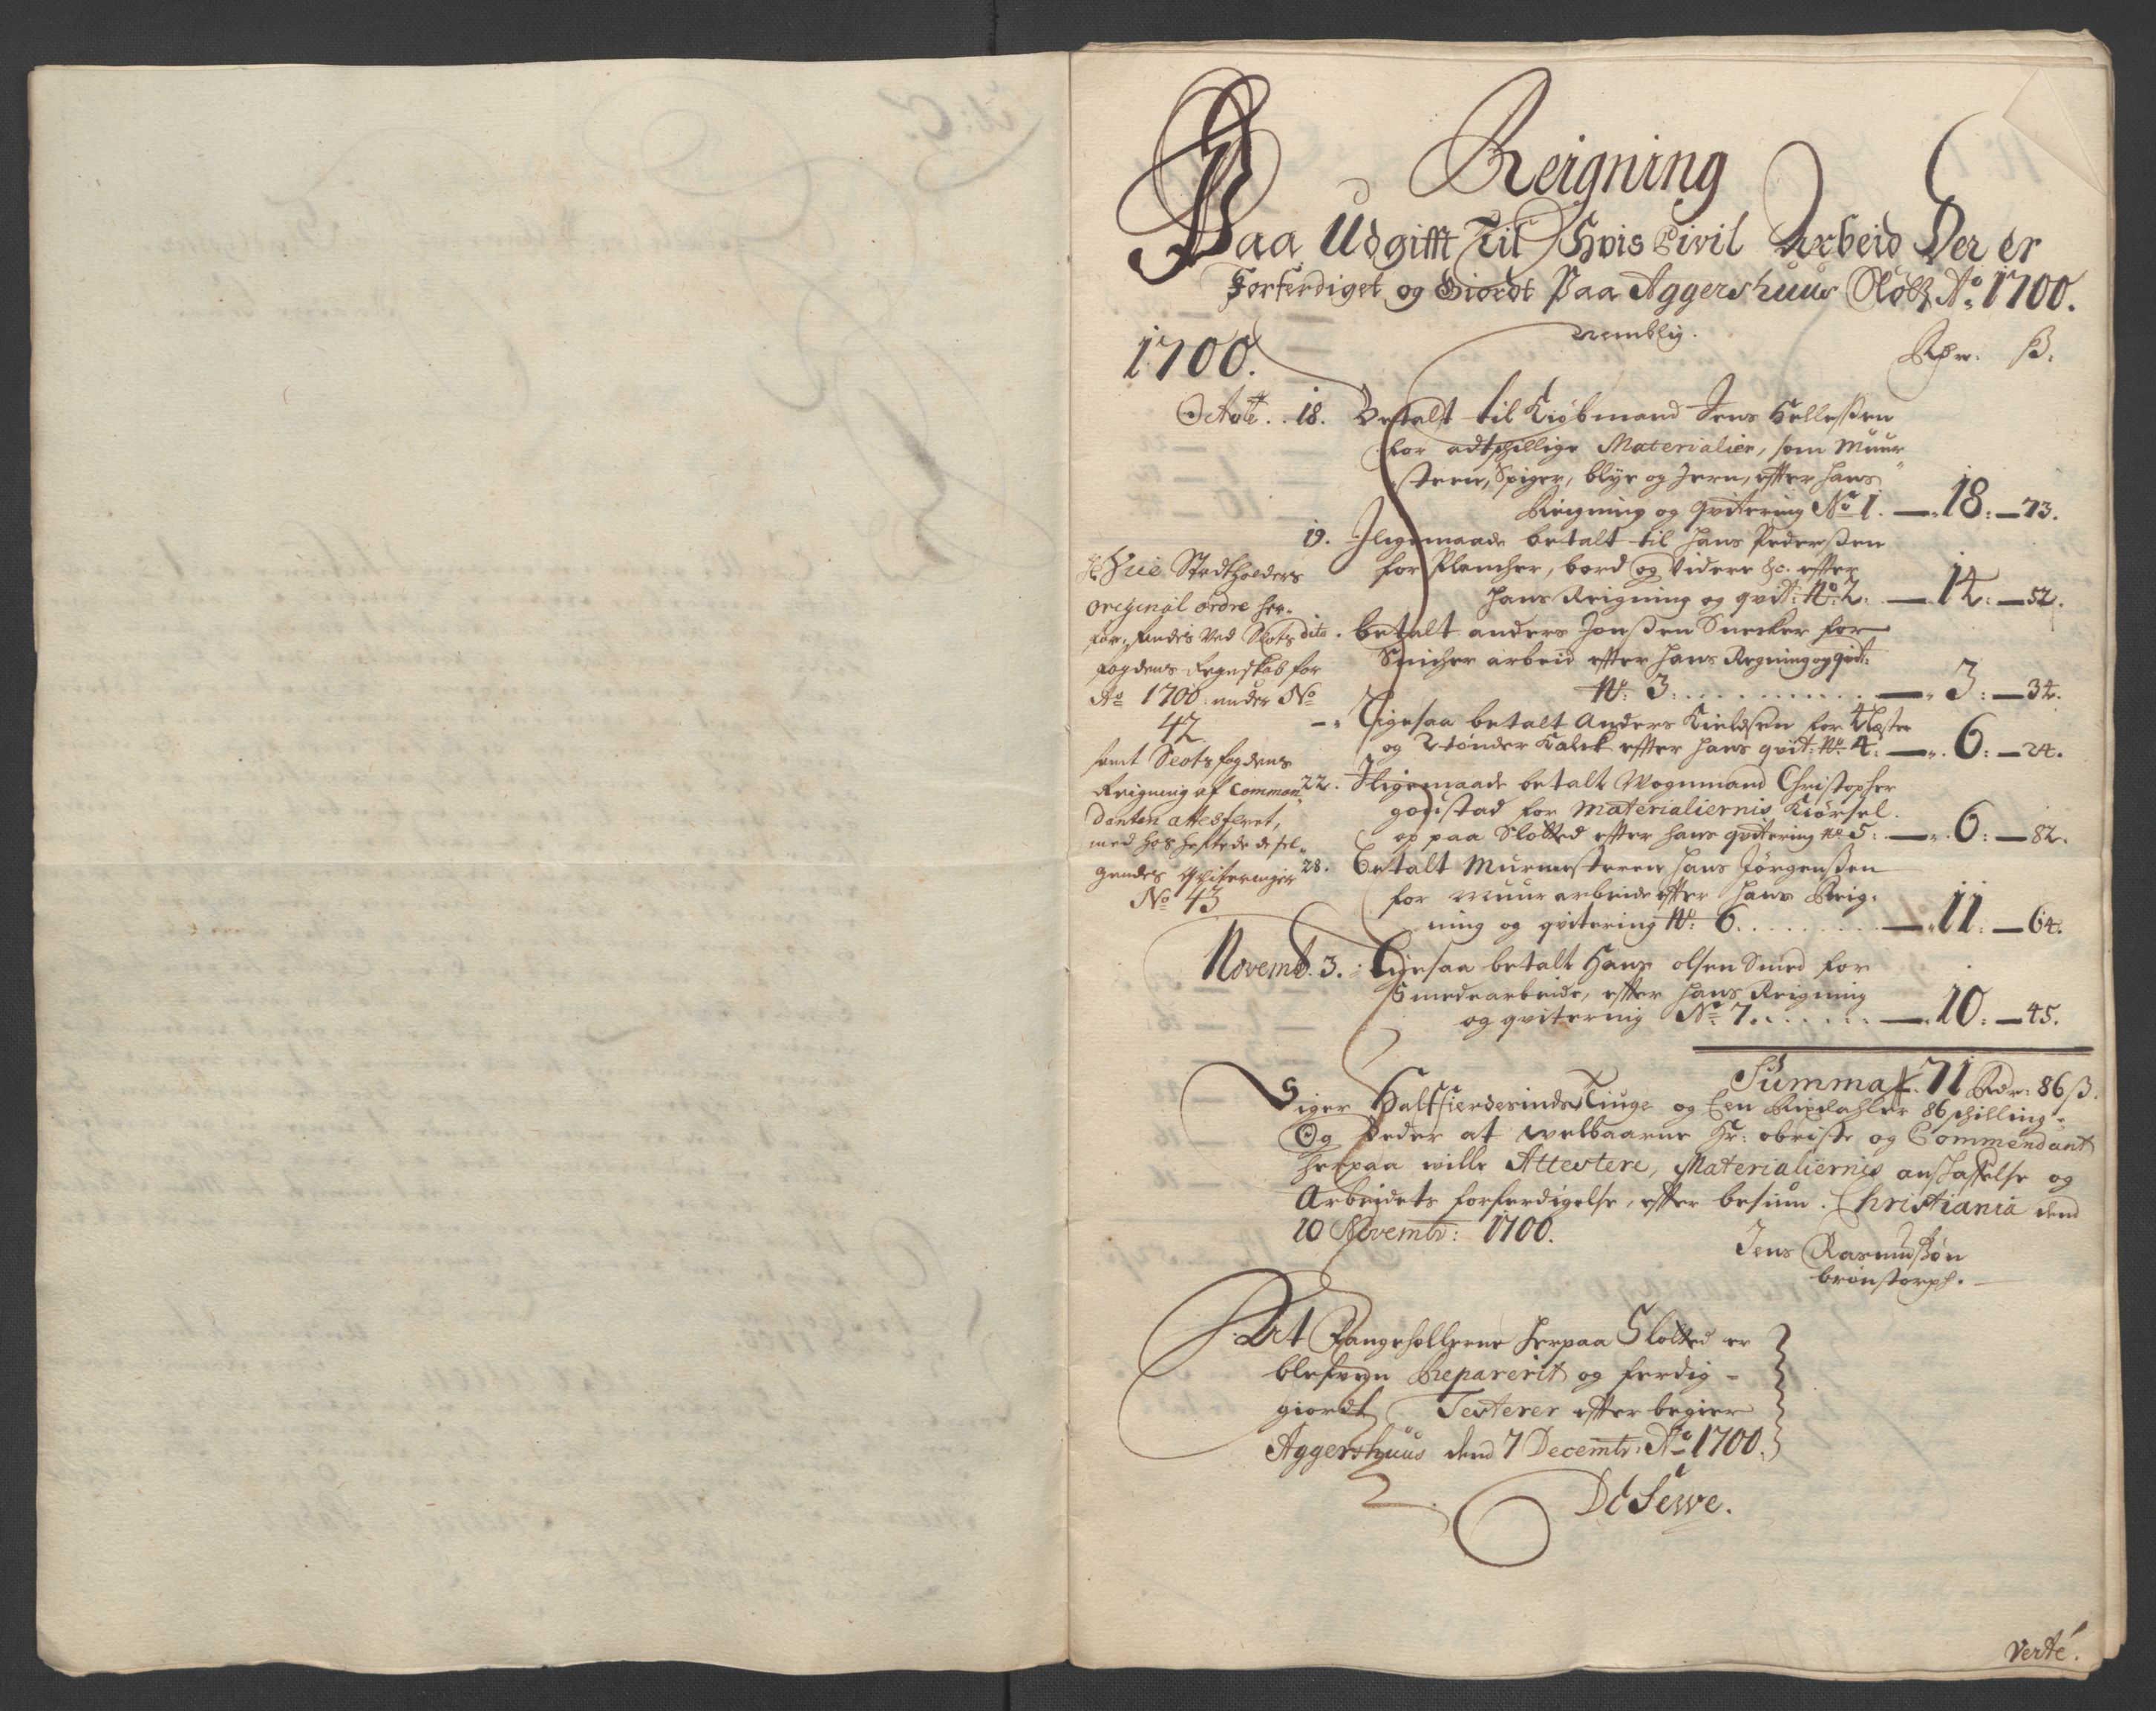 Reigning
Paa Udgifft Til Hvis Civil Arbeid Der er
Forferdiget og Giordt Paa Aggershuus Slott Ao. 1700.
nemblig.
1700. Rdr. ß.
Octobr. 18. Betalt til Kiøbmand Jens Hellessen
for adtschillige Materialier, som Muur
steen, Spiger, blye og Jern, effter hans
Reigning og qvitering No. 1. — 18: — 73.
19. Iligemaade betalt til Hans Pederssen
for Plancher, bord og Videre &c. effter
hans Reigning og qvit: No: 2: — 14: — 52.
dito. betalt anders Jonssen Snecker for
Snicher arbeid effter hans Regning og qvit:
No: 3: . . . . . . . . . . — 3: — 34.
— Ligesaa betalt Anders Kieldsen for 4 Læster
og 2 tønder Kalck effter hans qvit: No. 4: — 6: — 24.
22. Iligemaade betalt Wognmand Christopher
godistad for Materialiernis Kiørsel
op paa Slotted effter hans qvitering No. 5: — 6: — 82.
28. Betalt Murmesteren Hans Jørgenssen
for Muur arbeide effter hans Reig-
ning og qvitering No: 6. . . . . . . . — 11: — 64.
Novemb. 3. Ligesaa betalt Hans olsen Smed for
Smedearbeide, effter hans Reigning
og qvitering No. 7. . . . . . . — 10: — 45.
Stadtholders
original ordre her-
for, findis ved Slots
fogdens Regnskab for
Ao 1700. under No
42
samt Slotsfogdens
Reigning af Commen-
danten attesteret,
med hos heftede defel-
gendes qviteringer
No 43
Summa 71 Rdr: 86 ß.
Siger Halffierdesinds Tiuge og Een Rixdahler 86 schilling.
Og beder at welbaarne Hr: obriste og Commendant
herpaa wille Attestere, Materialiernis anskaffelse og
Arbeidets forferdigelse, effter besiun. Christiania dend
10 Novembr: 1700.
Jens Rasmussøn
brønstorph.
At Fangehollerne herpaa Slotted er
blefven Reparerit og ferdig
giordt Testerer effter begier
Aggershuus dend 7 Decembr: Ao 1700.
Verte.